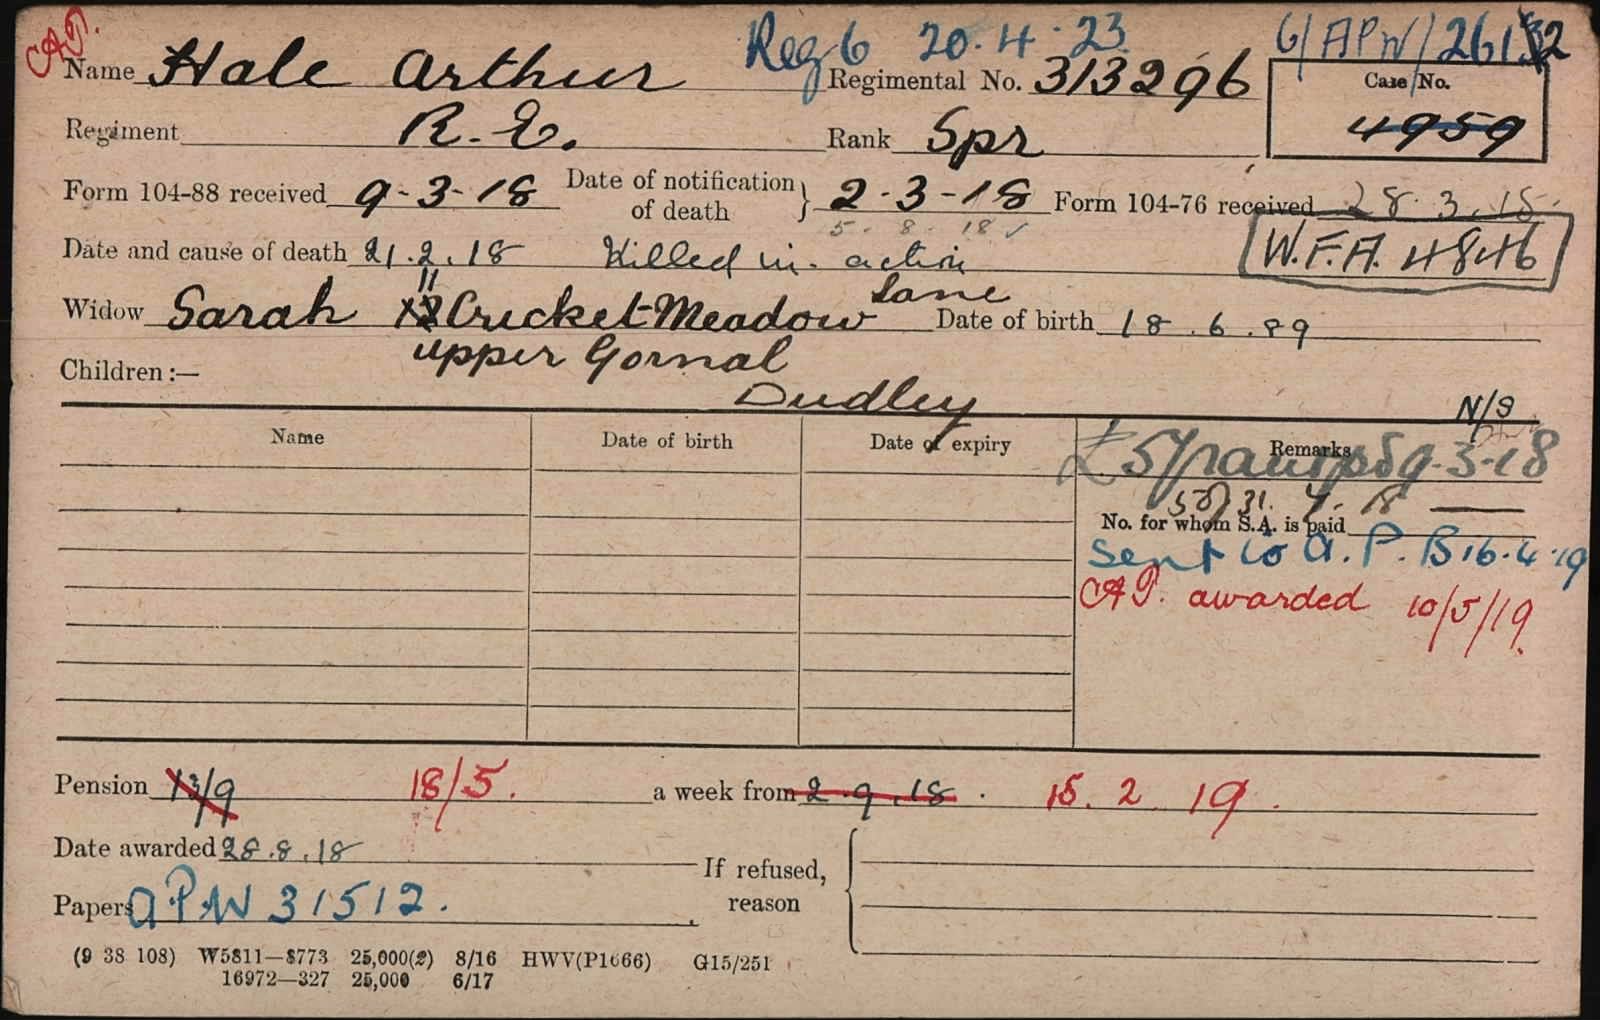 A.P. Reg 6 20.4.23 G/APW/26132
Name Hale Arthur Regimental No. 313296 Case No.
Regiment R.E. Rank Spr 4959
Form 104-88 received 9-3-18 Date of notification of death } 2-3-18 Form 104-76 received 28.3.18.
5-8-18 ✓
Date and cause of death 21.2.18 Killed in action W.F.A. 4846
11 Lane
Widow Sarah Cricket Meadow Date of birth 18.6.89
Upper Gornal
Children:—
Dudley
N/S
Name Date of birth Date of expiry Remarks
£5 9-3-18
31.
No. for whom S.A. is paid
Sent to A.P.B 16.4.19
A.P. awarded 10/5/19.
Pension 13/9 18/5. a week from 2.9.18. 15.2.19.
Date awarded 28.8.18
If refused, reason
Papers A.P.W 31512.
(9 38 108) W5811—8773 25,000(2) 8/16 HWV(P1666) G15/251
16972—327 25,000 6/17